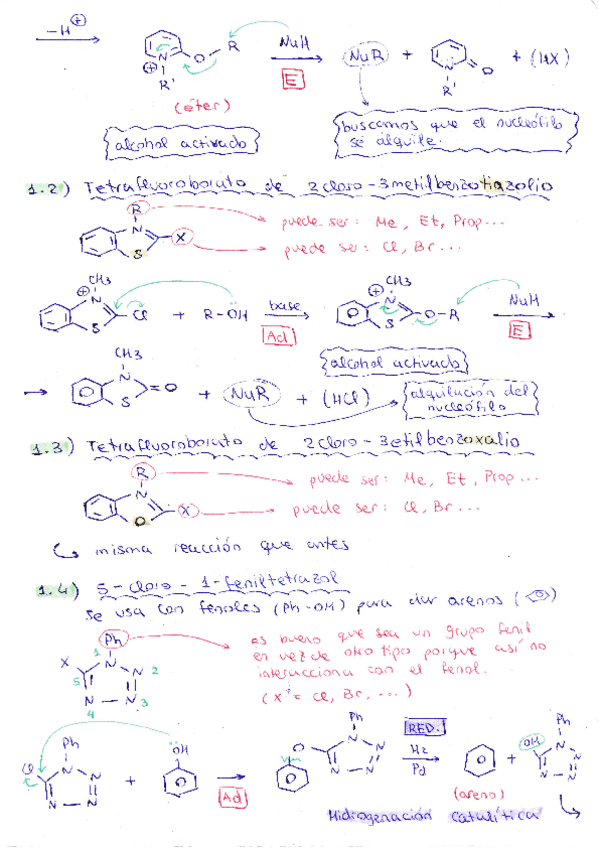 -H⊕
O R NuH NuR + N O + (HX)
N⊕ R' E R'
(éter)
alcohol activado
buscamos que el nucleófilo
se alquile.
1.2) Tetrafluoroborato de 2cloro-3metilbenzotiazolio
R
N puede ser: Me, Et, Prop...
S X puede ser: Cl, Br...
CH3 CH3
⊕N Cl + R-OH base ⊕N O-R NuH
S Ad S E
alcohol activado
CH3
N =O + NuR + (HCl) alquilación del
S nucleófilo
1.3) Tetrafluoroborato de 2cloro-3etilbenzoxalio
R puede ser: Me, Et, Prop...
N
O X puede ser: Cl, Br...
misma reacción que antes
1.4) 5-cloro-1-feniltetrazol
Se usa con fenoles (Ph-OH) para dar arenos
Ph es bueno que sea un grupo fenil
X 1 N en vez de otro tipo porque así no
5 N 2 interacciona con el fenol.
N N 3 (X = Cl, Br, ...)
4
Ph OH Ph RED. Ph
Cl N O N H2 OH N
N N N + Ad N N N Pd + N N N
(areno)
Hidrogenación catalítica